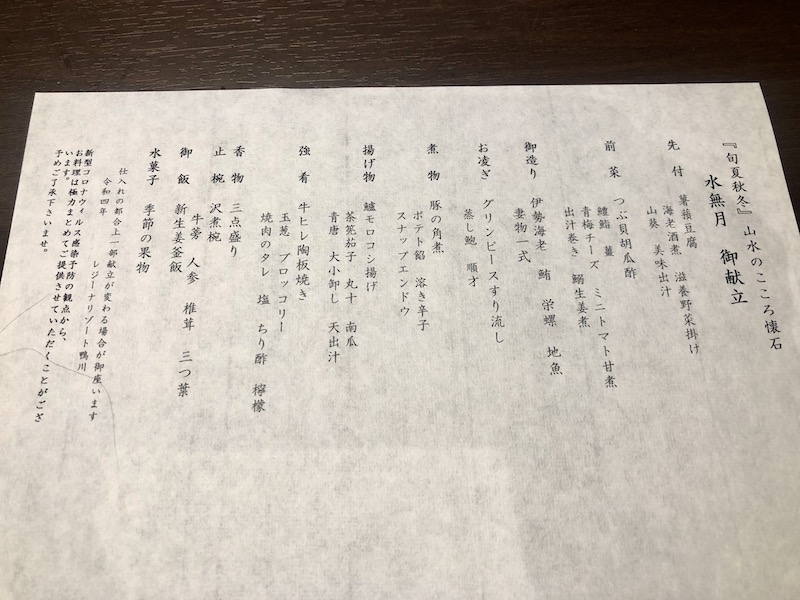 『旬夏秋冬』 山水のこころ懐石
水無月 御献立
先付 薯蕷豆腐 滋養野菜掛け
海老酒煮 美味出汁
山葵
前菜 つぶ貝胡瓜酢
鱧鮨 薑 ミニトマト甘煮
青梅チーズ
出汁巻き 鰯生姜煮
御造り 伊勢海老 鮪 栄螺 地魚
妻物一式
お凌ぎ グリンピースすり流し
蒸し鮑 順才
煮物 豚の角煮
ポテト餡 溶き辛子
スナップエンドウ
揚げ物 鱸モロコシ揚げ
茶筅茄子 丸十 南瓜
青唐 大小卸し 天出汁
強肴 牛ヒレ陶板焼き
玉葱 ブロッコリー
焼肉のタレ 塩 ちり酢 檸檬
香物 三点盛り
止椀 沢煮椀
牛蒡 人参 椎茸 三つ葉
御飯 新生姜釜飯
水菓子 季節の果物
仕入れの都合上一部献立が変わる場合が御座います
令和四年 レジーナリゾート鴨川
新型コロナウィルス感染予防の観点から、
お料理は極力まとめてご提供させていただくことがござ
います。
予めご了承下さいませ。